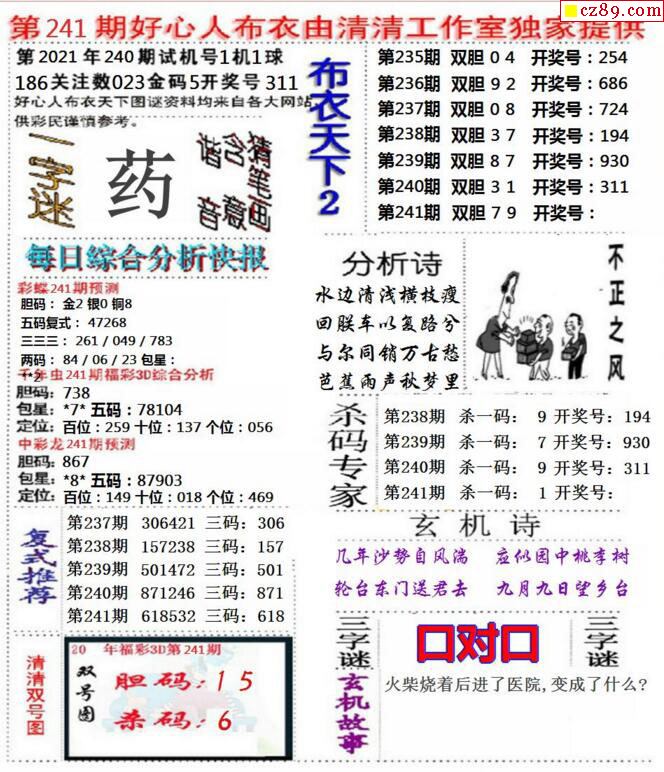 cz89.com
第241期好心人布衣由清清工作室独家提供
第2021年240期试机号1机1球
186关注数023金码5开奖号311
好心人布衣天下图谜资料均来自各大网站,
供彩民谨慎参考。
一字谜
药
谐音
含意
猜笔画
布衣天下2
第235期 双胆04 开奖号:254
第236期 双胆92 开奖号:686
第237期 双胆08 开奖号:724
第238期 双胆37 开奖号:194
第239期 双胆87 开奖号:930
第240期 双胆31 开奖号:311
第241期 双胆79 开奖号:
每日综合分析快报
彩蝶241期预测
胆码: 金2 银0 铜8
五码复式: 47268
三三三: 261 / 049 / 783
两码: 84 / 06 / 23 包星:
**2
千年虫241期福彩3D综合分析
胆码:738
包星:*7* 五码:78104
定位:百位:259 十位:137 个位:056
中彩龙241期预测
胆码:867
包星:*8* 五码:87903
定位:百位:149 十位:018 个位:469
分析诗
水边清浅横枝瘦
回朕车以复路兮
与尔同销万古愁
芭蕉雨声秋梦里
不正之风
杀码专家
第238期 杀一码: 9 开奖号:194
第239期 杀一码: 7 开奖号:930
第240期 杀一码: 9 开奖号:311
第241期 杀一码: 1 开奖号:
复式推荐
第237期 306421 三码:306
第238期 157238 三码:157
第239期 501472 三码:501
第240期 871246 三码:871
第241期 618532 三码:618
玄机诗
几年沙势自风湍 应似园中桃李树
轮台东门送君去 九月九日望乡台
清清双号图
20 年福彩3D第241期
双号图
胆码:15
杀码:6
三字谜
口对口
三字谜
玄机故事
火柴烧着后进了医院,变成了什么?